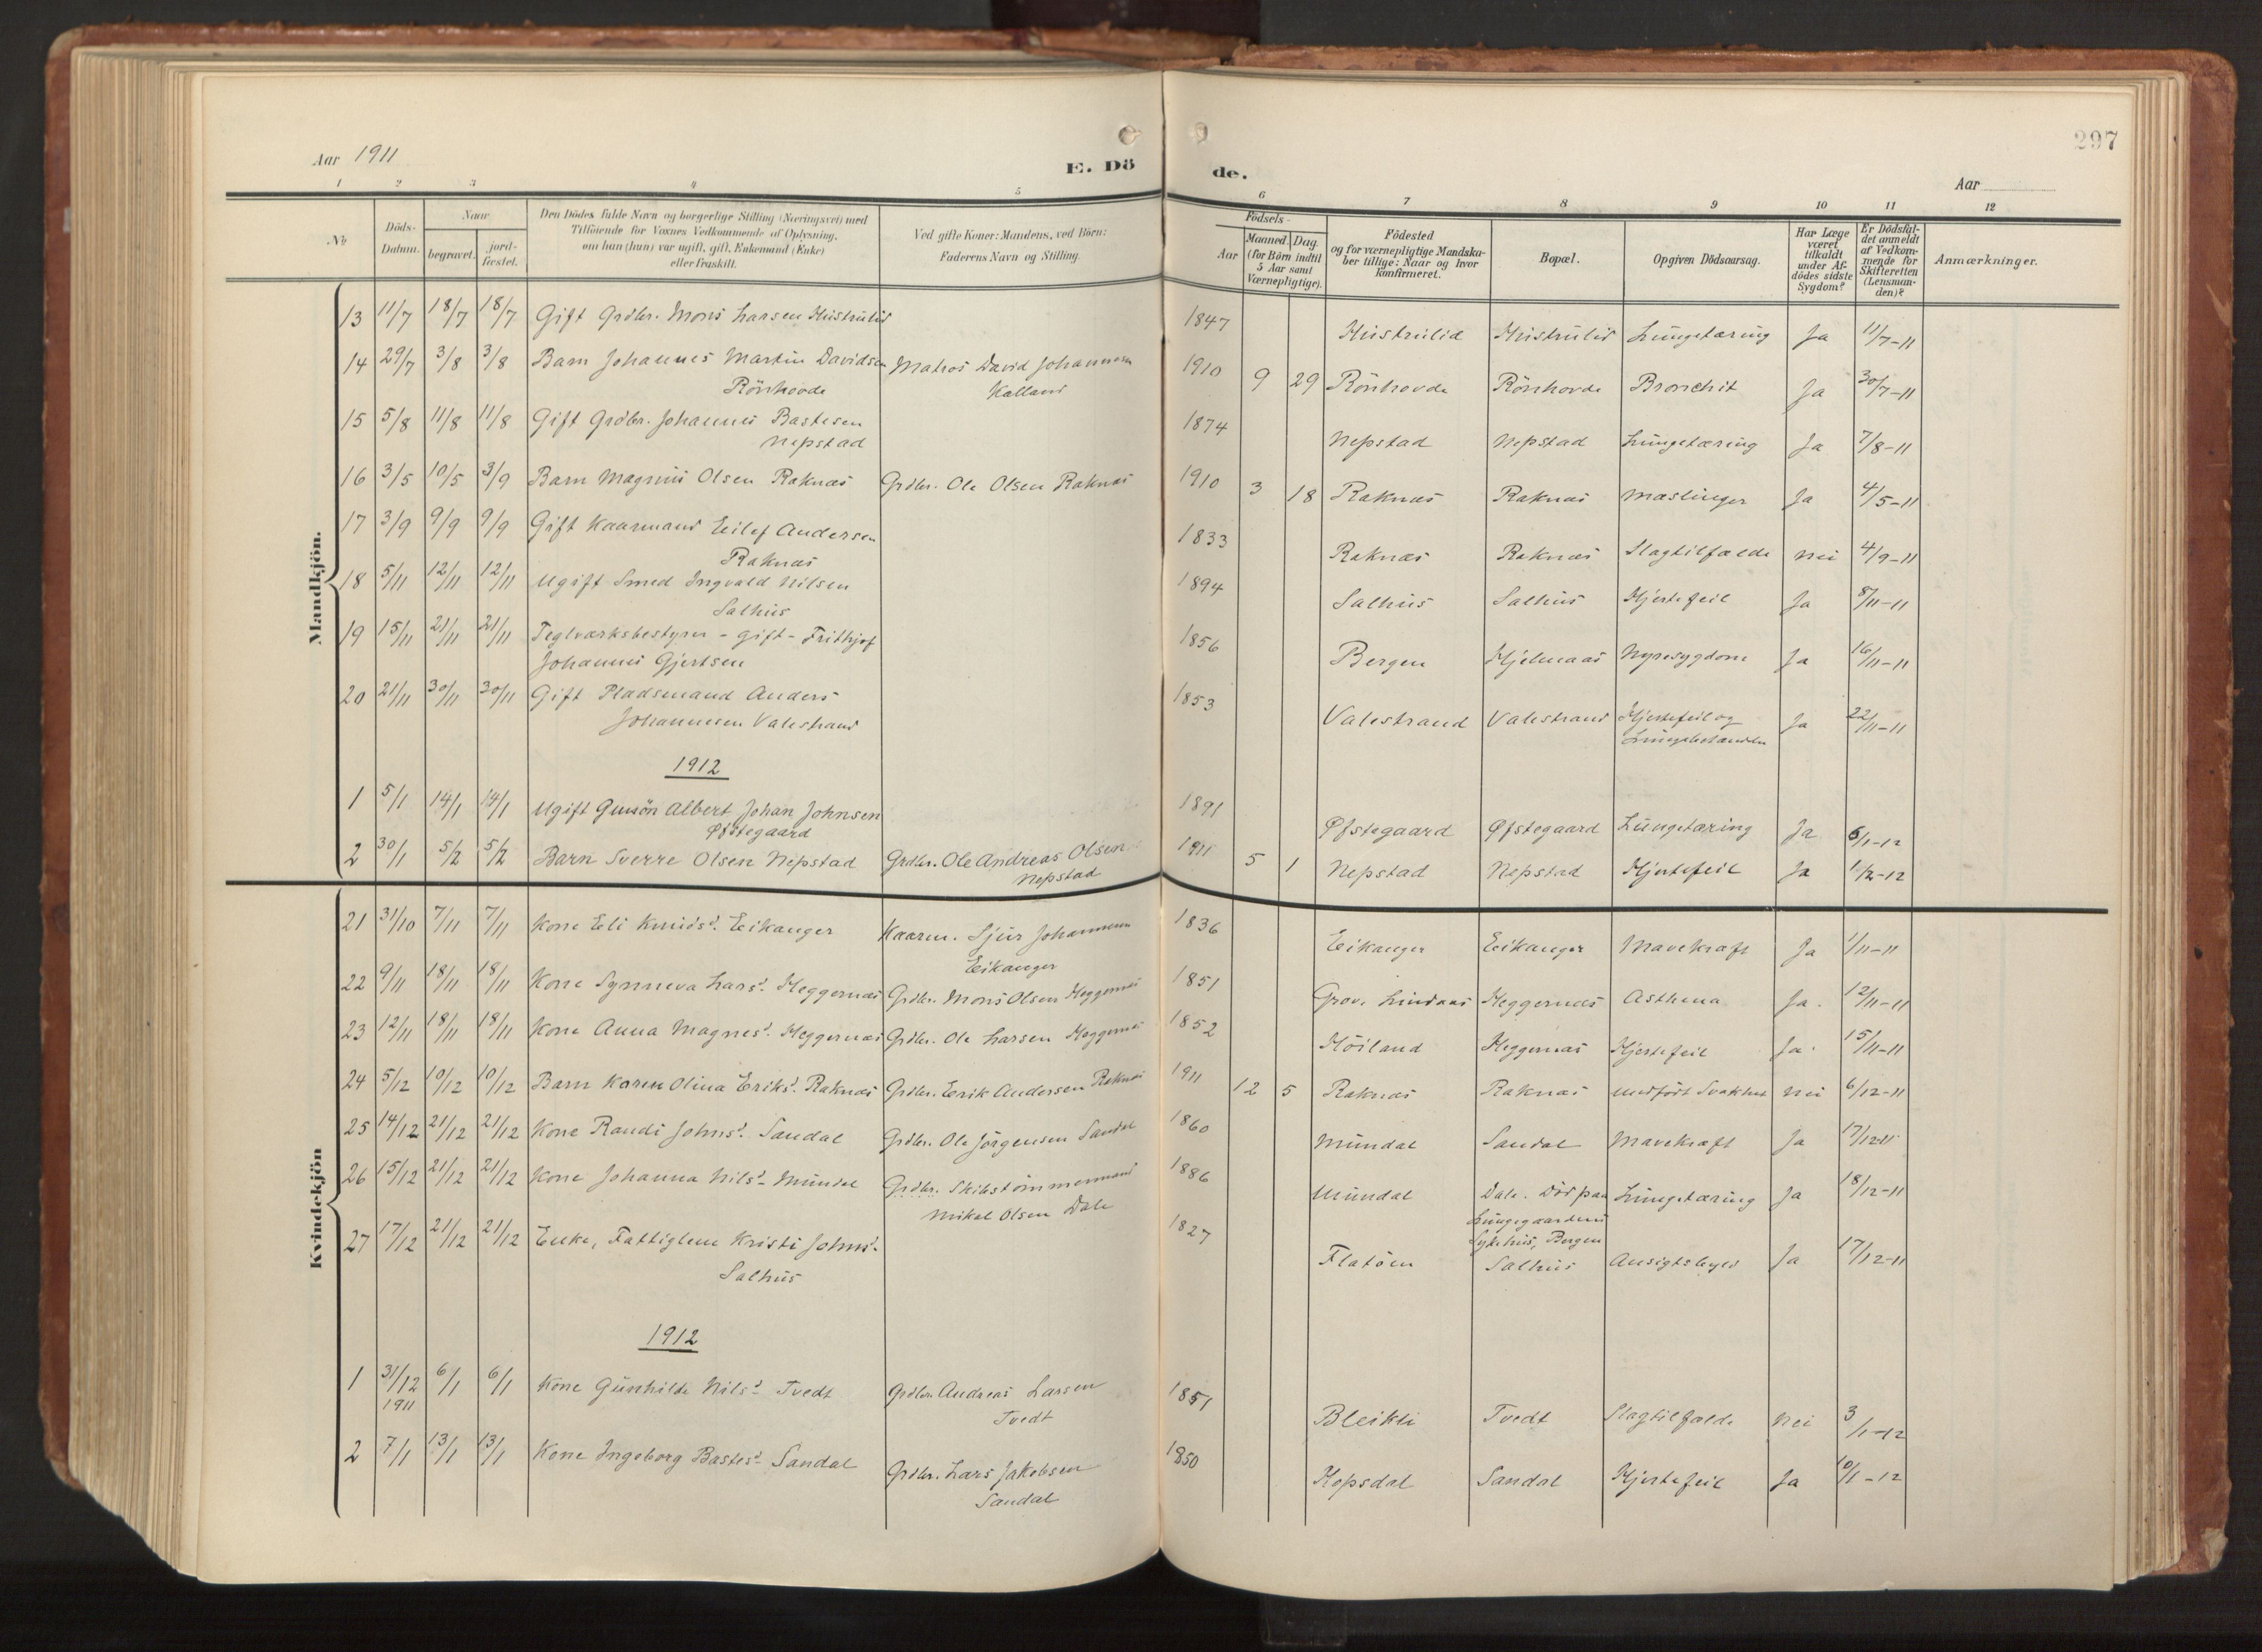 297
Aar 1911
E. Dö
de.
Aar
1 2 3 4 5 6 7 8 9 10 11 12
No
Döds-
Datum.
Naar
begravet.
jord-
fæstet.
Den Dödes fulde Navn og borgerlige Stilling (Næringsvei) med
Tilföiende for Voxnes Vedkommende af Oplysning,
om han (hun) var ugift, gift, Enkemand (Enke)
eller fraskilt.
Ved gifte Koner: Mandens, ved Börn:
Faderens Navn og Stilling.
Födsels-
Aar
Maaned. Dag.
(for Børn indtil
5 Aar samt
Værnepligtige).
Födested
og for værnepligtige Mandska-
ber tillige: Naar og hvor
konfirmeret.
Bopæl.
Opgiven Dödsaarsag.
Har Læge
været
tilkaldt
under Af-
dödes sidste
Sygdom?
Er Dödsfal-
det anmeldt
af Vedkom-
mende for
Skifteretten
(Lensman-
den)?
Anmærkninger.
Mandkjön.
13 11/7 18/7 18/7 Gift Grdbr. Mons Larsen Hustrulid 1847 Hustrulid Hustrulid Lungetæring Ja 11/7-11
14 29/7 3/8 3/8 Barn Johannes Martin Davidsen Matros David Johannesen 1910 9 29 Rönhovde Rönhovde Bronchit Ja 30/7-11
Rönhovde Kalland
15 5/8 11/8 11/8 Gift Grdbr. Johannes Bastesen 1874 Nepstad Nepstad Lungetæring Ja 7/8-11
Nepstad
16 3/5 10/5 3/9 Barn Magnus Olsen Raknæs Grdbr. Ole Olsen Raknæs 1910 3 18 Raknæs Raknæs Mæslinger Ja 4/5-11
17 3/9 9/9 9/9 Gift Kaarmand Eilef Andersen 1833 Raknæs Raknæs Slagtilfælde Nei 4/9-11
Raknæs
18 5/11 12/11 12/11 Ugift Smed Ingvald Nilsen 1894 Salhus Salhus Hjertefeil Ja 8/11-11
Salhus
19 15/11 21/11 21/11 Teglværksbestyrer - gift - Frithjof 1856 Bergen Hjelmaas Nyresygdom Ja 16/11-11
Johannes Gjertsen
20 21/11 30/11 30/11 Gift Pladsmand Anders 1853 Valestrand Valestrand Hjertefeil og Ja 22/11-11
Johannesen Valestrand
1912
1 5/1 14/1 14/1 Ugift Gmsön Albert Johan Johnsen 1891 Øfstegaard Øfstegaard Lungetæring Ja 6/1-12
Øfstegaard
2 30/1 5/2 5/2 Barn Sverre Olsen Nepstad Grdbr. Ole Andreas Olsen 1911 5 1 Nepstad Nepstad Hjertefeil Ja 1/2-12
Nepstad
Kvindekjön
21 31/10 7/11 7/11 Kone Eli Knudsd. Eikanger Kaarm. Sjur Johannesen 1836 Eikanger Eikanger Mavekræft Ja 1/11-11
Eikanger
22 9/11 18/11 18/11 Kone Synneva Larsd. Heggernæs Grdbr. Mons Olsen Heggernæs 1851 Grov. Lindaas Heggernæs Asthma Ja. 12/11-11
23 12/11 18/11 18/11 Kone Anna Magnesd. Heggernæs Grdbr. Ole Larsen Heggernæs 1852 Höiland Heggernæs Hjertefeil Ja. 15/11-11
24 5/12 10/12 10/12 Barn Karen Olina Eriksd. Raknæs Grdbr. Erik Andersen Raknæs 1911 12 5 Raknæs Raknæs Medfödt Svakhet Nei 6/12-11
25 14/12 21/12 21/12 Kone Randi Johnsd. Sandal Grdbr. Ole Jörgensen Sandal 1860 Mundal Sandal Mavekræft Ja 17/12-11
26 15/12 21/12 21/12 Kone Johanna Nilsd. Mundal Grdbr. Skibstömmermand 1886 Mundal Dale. Död paa Lungetæring Ja 18/12-11
Mikal Olsen Dale Lungegaardens
Sykehus, Bergen
27 17/12 21/12 21/12 Enke, Fattiglem Kristi Johnsd. 1827 Flatöen Salhus Ansigtsbyld Ja 17/12-11
Salhus
1912
1 31/12 6/1 6/1 Kone Gunhilde Nilsd. Tvedt Grdbr. Andreas Larsen 1851 Bleikli Tvedt Slagtilfælde Nei 3/1-12
1911 Tvedt
2 7/1 13/1 13/1 Kone Ingeborg Bastesd. Sandal Grdbr. Lars Jakobsen 1850 Hopsdal Sandal Hjertefeil Ja 10/1-12
Sandal